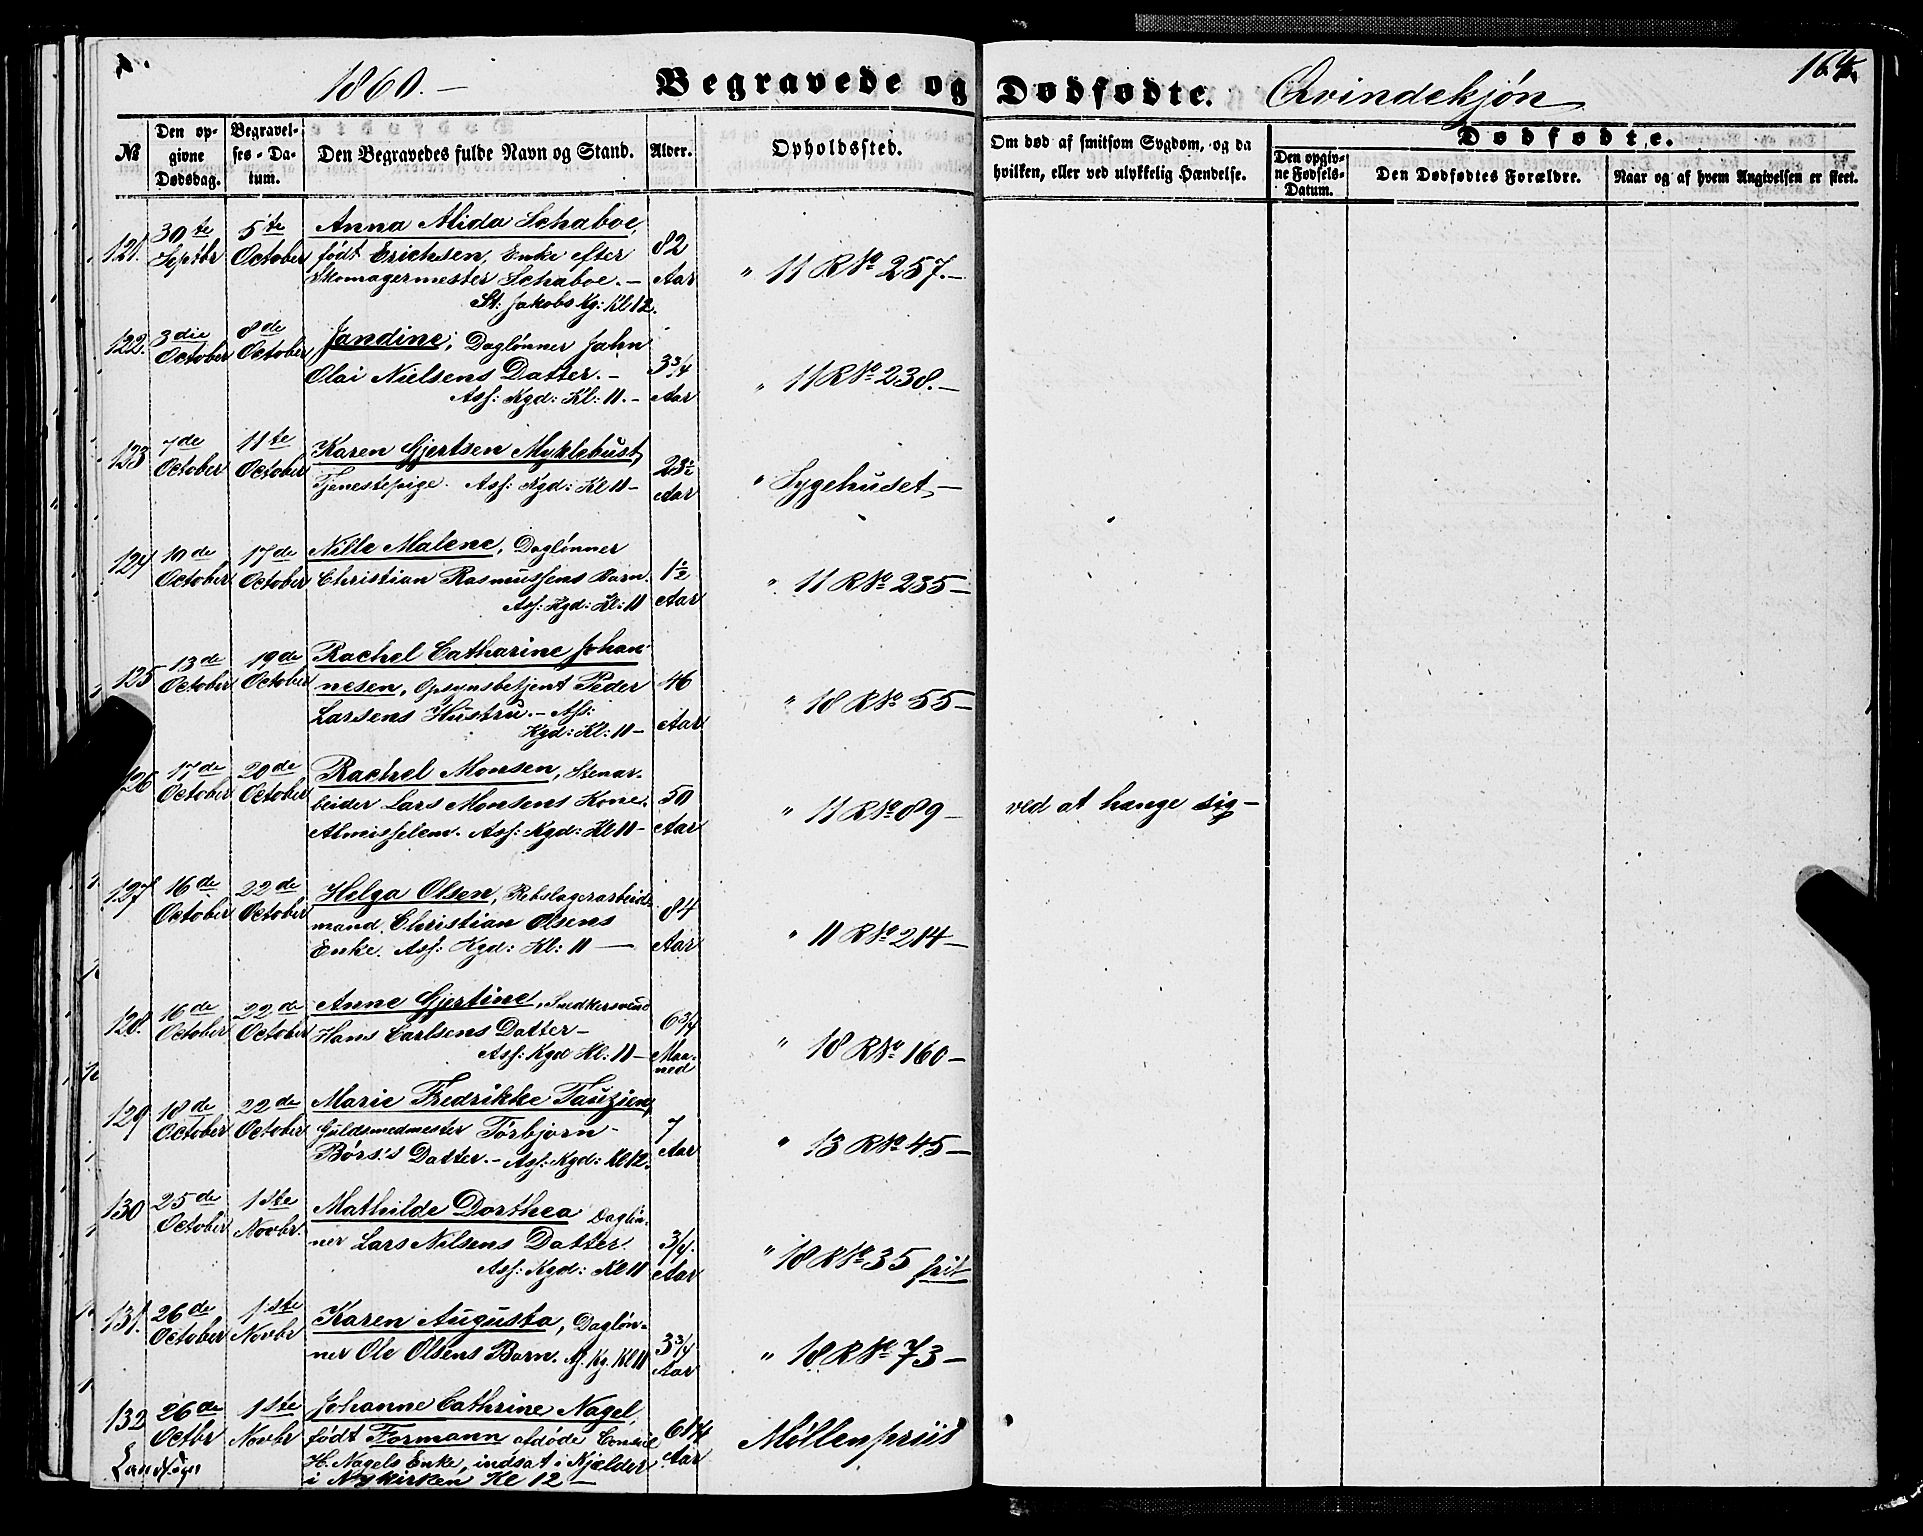 1860.- Begravede og Dødfødte. Qvindekjön
164
№ Den opgivne Dødsdag. Begravelses-Datum. Den Begravedes fulde Navn og Stand. Alder. Opholdssted. Om død af smitsom Sygdom, og da hvilken, eller ved ulykkelig Hændelse. Dødfødte. Den opgivne Fødsels-Datum. Den Dødfødtes Forældre. Naar og af hvem Angivelsen er skeet.
121. 30te Septbr 5te October Anna Alida Schaboe, 82 Aar " 11 R No 257.-
født Erichsen, Enke efter
Skomagermester Schaboe.-
St: Jakobs Kg: Kl 12.
122. 3die October 8de October Jandine, Daglönner Jahn 3 3/4 Aar " 11 R No 238.-
Olai Nielsens Datter.-
Ass: Kgd: Kl: 11.-
123 7de October 11te October Karen Gjertsen Myklebust, 23 1/2 Aar " Sygehuset,-
Tjenestepige. Ass: Kgd: Kl 11-
124 10de October 17de October Nille Malene, Daglönner 1 1/2 Aar " 11 R No 235-
Christian Rasmussens Barn.
Ass: Kgd: Kl: 11
125 13de October 19de October Rachel Catharine Johan- 46 Aar " 18 R No 55-
nesen, Opsynsbetjent Peder
Larsens Hustru.- Ass:
Kgd: Kl: 11-
126 17de October 20de October Rachel Monsen, Stenar- 50 Aar " 11 R No 89- ved at hænge sig-
beider Lars Monsens Kone.
Almisselem. Ass: Kgd: Kl 11-
127 16de October 22de October Helga Olsen, Rebslagerarbeids- 84 Aar " 11 R No 214-
mand Christian Olsens
Enke. Ass: Kgd: Kl: 11-
128. 16de October 22de October Anne Gjertine, Snedkersvend 6 3/4 Maaned " 18 R No 160-
Hans Carlsens Datter-
Ass: Kgd Kl: 11-
129 18de October 22de October Marie Fredrikke Tauzien, 7 Aar " 13 R No 45-
Guldsmedmester Törbjorn-
Börs's Datter.- Ass: Kgd: Kl 12.
130 25de October 1ste Novbr. Mathilde Dorthea Daglön- 3/4. Aar " 18 R No 35 frit
ner Lars Nilsens Datter.
Ass: Kgd: Kl 11
131. 26de October 1ste Novbr Karen Augusta, Daglön- 3 3/4 Aar " 18 R No 73-
ner Ole Olsens Barn. As. Kg. Kl 11
132 26de Octbr 1ste Novbr Johanne Cathrine Nagel, 68 1/4 Aar Möllenpriis
født Formann afdöde Consul
H. Nagels Enke, indsat i Kjælder
i Nykirken Kl 12-